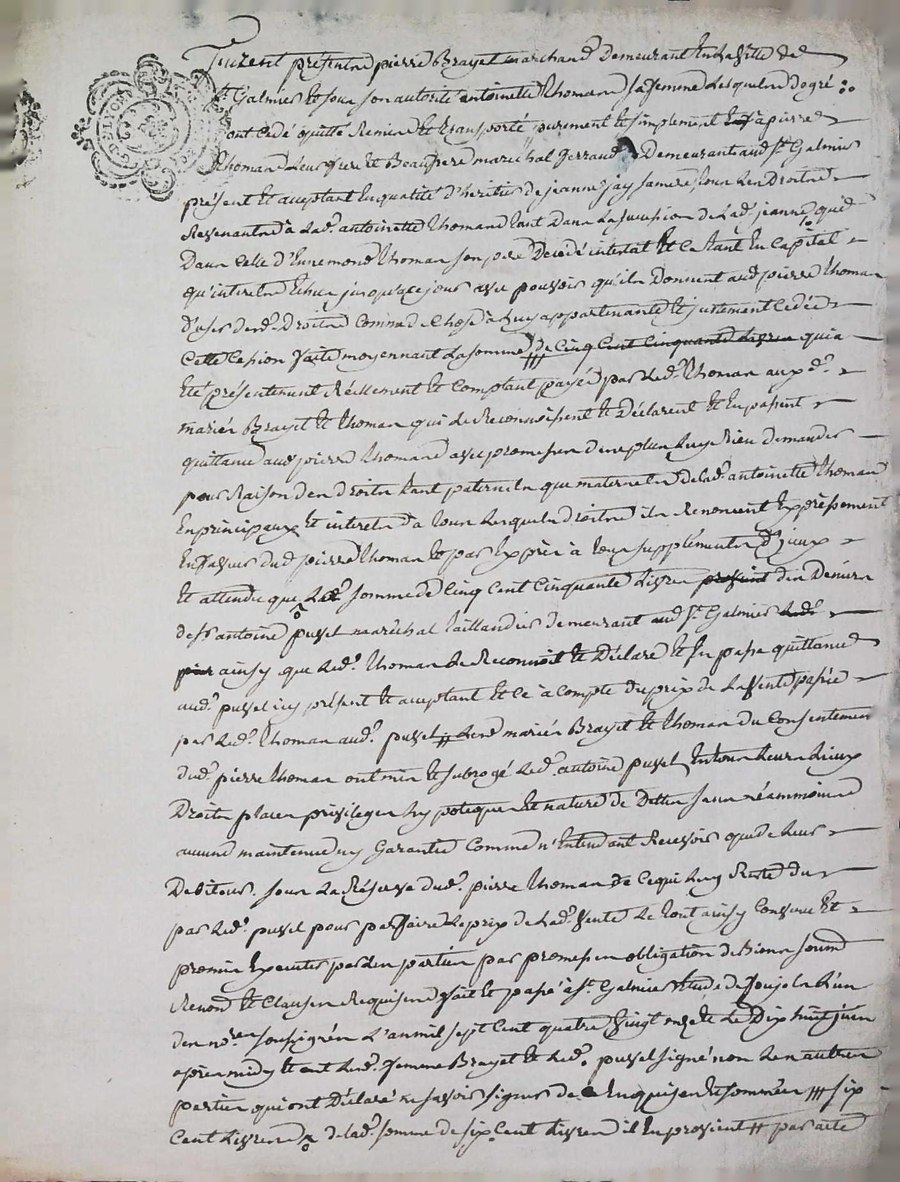 G. D. LYON
Furent présents pierre Brayet marchand Demeurant En la ville de
St Galmier Et sous son autorité antoinette thomand sa femme Lesquels de gré
ont cédé quitté Remis Et transporté purement Et simplement à pierre
thomand Leur frere Et Beaufrere maréchal ferrand Demeurant aud. St Galmier
présent Et acceptant En qualité d'héritier de jeanne jay sa mere tous Les Droits
Revenants à Lad. antoinette thomand tant Dans La succession de Lad. jeanne que
Dans Celle d'Ennemond thoman son pere Décédé intestat Et Ce tant En Capital
qu'interets Echus jusqu'a ce jour avec pouvoir qu'ils Donnent aud. pierre thoman
D'user desd. Droits Comme de Chose à Luy appartenante Et justement Cédée
Cette Cession faite moyennant La somme de Cinq Cent Cinquante Livres qui a
Eté présentement Réellement Et Comptant payée par Led. thoman aux d.
mariés Brayet Et thoman qui Le Reconnoissent Et Déclarent Et En passent
quittance aud. pierre thomand avec promesse de ne plus Luy Rien demander
pour Raison des droits tant paternels que maternels de Lad. antoinette thoman
En principaux Et interets à tous Lesquels droits ils Renoncent Expressement
En faveur dud. pierre thoman Et par Exprès à tous supplements d'yceux
Et attendu que Lad. somme de Cinq Cent Cinquante Livres provient des Deniers
de Sr antoine puvel maréchal taillandier demeurant aud. St Galmier Led.
pier ainsy que Led. thoman Le Reconnoit Et Déclare Et En passe quittance
aud. puvel icy présent Et acceptant Et Ce à Compte du prix de La vente passée
par Led. thoman aud. puvel # Lesd. mariés Brayet Et thoman du Consentement
dud. pierre thoman ont mis Et subrogé Led. antoine puvel En tous Leurs Lieux
Droits places privileges hypoteques Et nature de Dettes sans néammoins
aucune maintenue ny Garantie Comme n'Entendant Recevoir que de Leur
Debiteur. sous La Réserve dud. pierre thoman de Ce qui Luy Reste du
par Led. puvel pour parfaire Le prix de Lad. vente Le tout ainsy Convenu Et
promis Executer par Les parties par promesses obligation de Biens soumd
Renond Et Clauses Requises fait Et passé à St Galmier Etude de L'un
des nores soussignés L'an mil sept Cent quatre vingt onze Et Le Dix huit juin
apres midy Et ont Lad. femme Brayet Et Led. puvel signé non Les autres
parties qui ont Déclaré ne savoir signer de Ce Enquises Et sommées # six
Cent Livres de Lad. somme de six Cent Livres il En provient # par acte